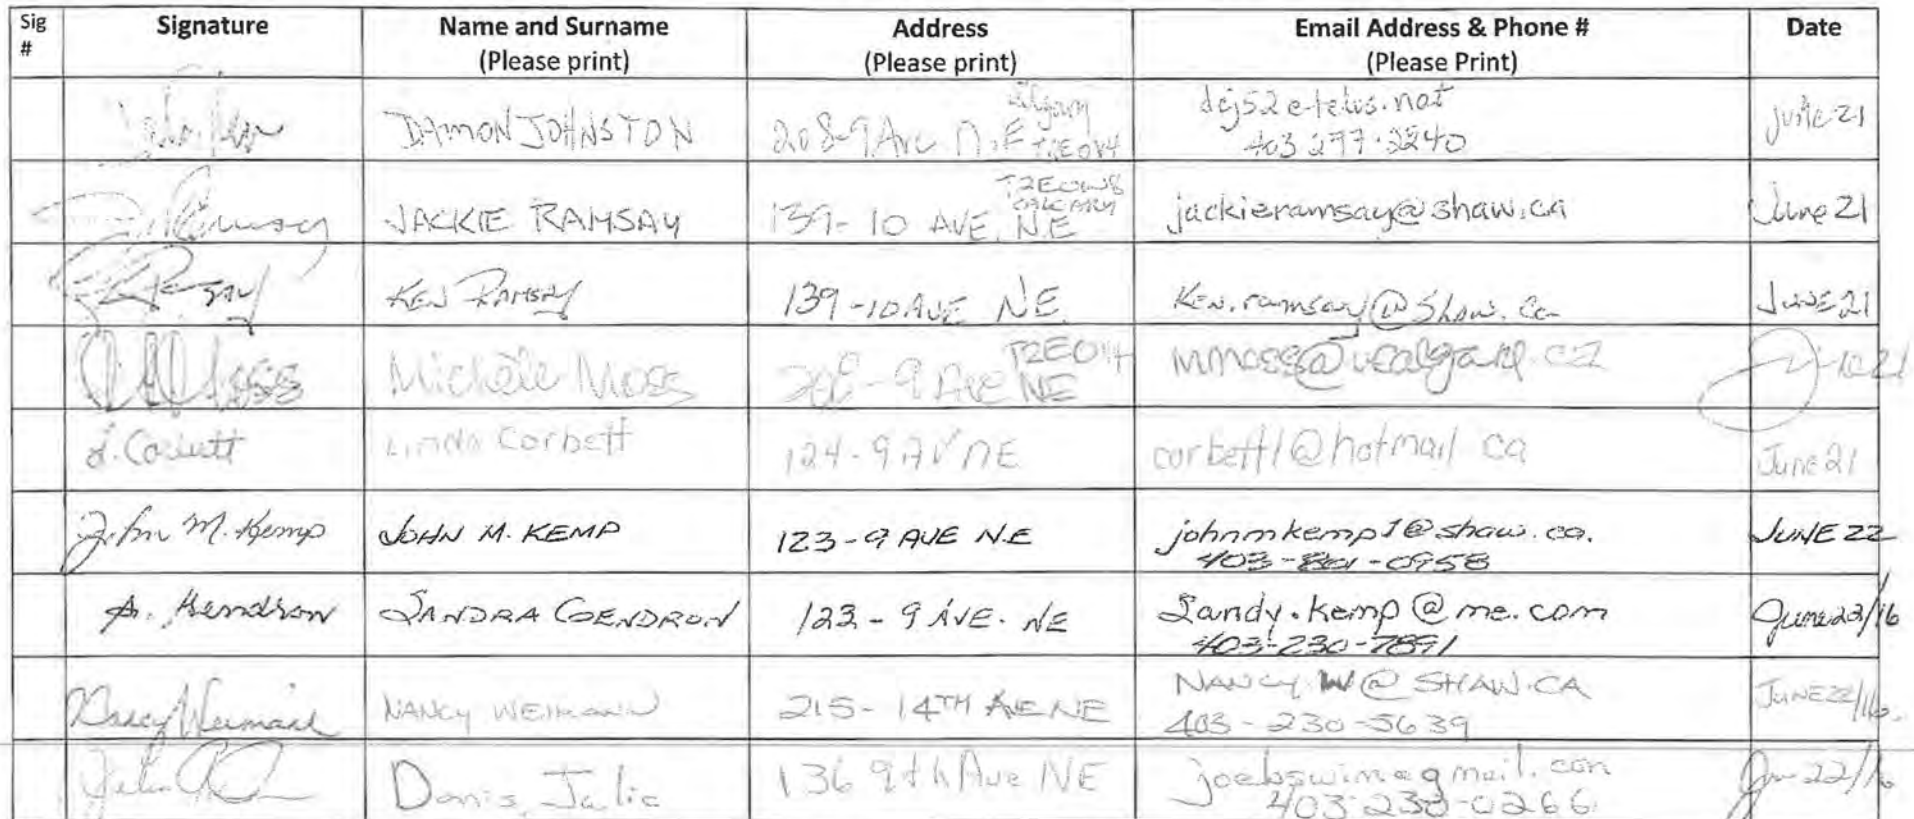 Sig # Signature Name and Surname (Please print) Address (Please print) Email Address & Phone # (Please Print) Date
DAMON JOHNSTON 208-9 Ave N.E T2E0V4 dcj52@telus.net 403 277-2240 June 21
JACKIE RAMSAY 139-10 AVE. N.E T2E0W8 CALGARY jackieramsay@shaw.ca June 21
KEN RAMSAY 139-10 AVE NE Ken.ramsay@shaw.ca JUNE 21
Michèle Moss 208-9 Ave NE T2E0V4 mmoss@ucalgary.ca 21
L. Corbett Linda Corbett 124-9 AV NE corbettl@hotmail.ca June 21
John M. Kemp JOHN M. KEMP 123-9 AVE N.E johnmkemp1@shaw.ca. 403- -0958 JUNE 22
S. Gendron SANDRA GENDRON 123-9 AVE. NE Sandy.kemp@me.com 403-230-7891 June 22/16
Nancy Weimann NANCY WEIMANN 215-14TH AVE NE NANCY.W@SHAW.CA 403-230-5639 JUNE 22/16.
Danis 136 9th Ave NE 22/16